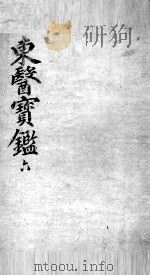 東醫寶鑑
六
mtoou.info